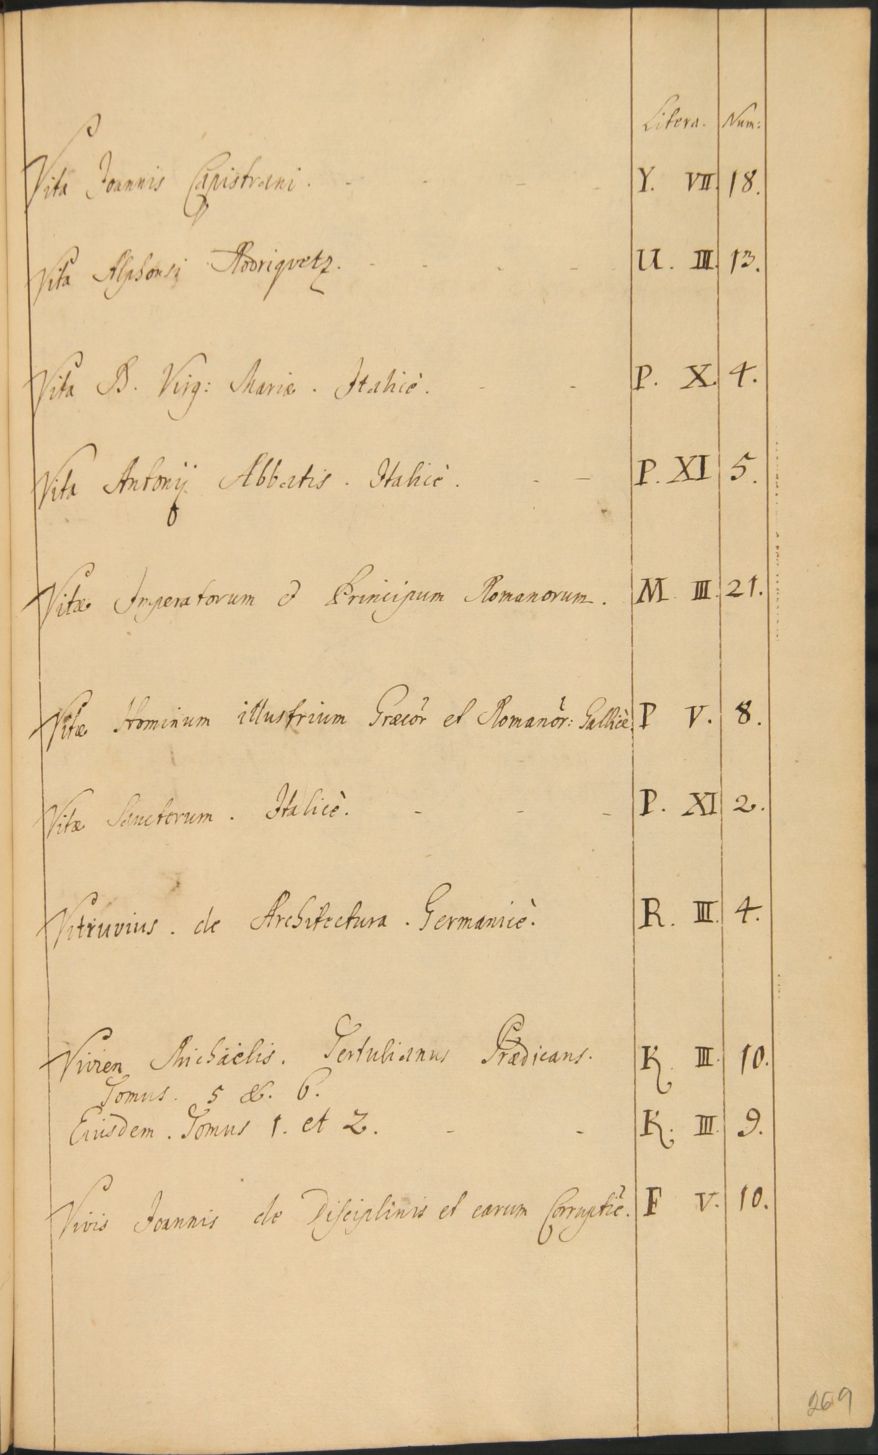 Litera. Num:
Vita Joannis Capistrani. Y. VII. 18.
Vita Alphonsi Rodriquetz. U. III. 13.
Vita B. Virg: Mariæ. Italicè. P. X. 4.
Vita Antonij Abbatis. Italicè. P. XI 5.
Vitæ Imperatorum & Principum Romanorum. M III. 21.
Vitæ Hominum illustrium Græcor et Romanor: Gallicè. P V. 8.
Vitæ Sanctorum. Italicè. P. XI 2.
Vitruvius. de Architectura. Germanicè. R. III. 4.
Vivien Michaëlis. Tertulianus Prædicans. K III. 10.
Tomus. 5 &. 6.
Eiusdem. Tomus 1. et 2. K. III. 9.
Vivis Joannis de Disciplinis et earum Corruptiē. F V. 10.
269